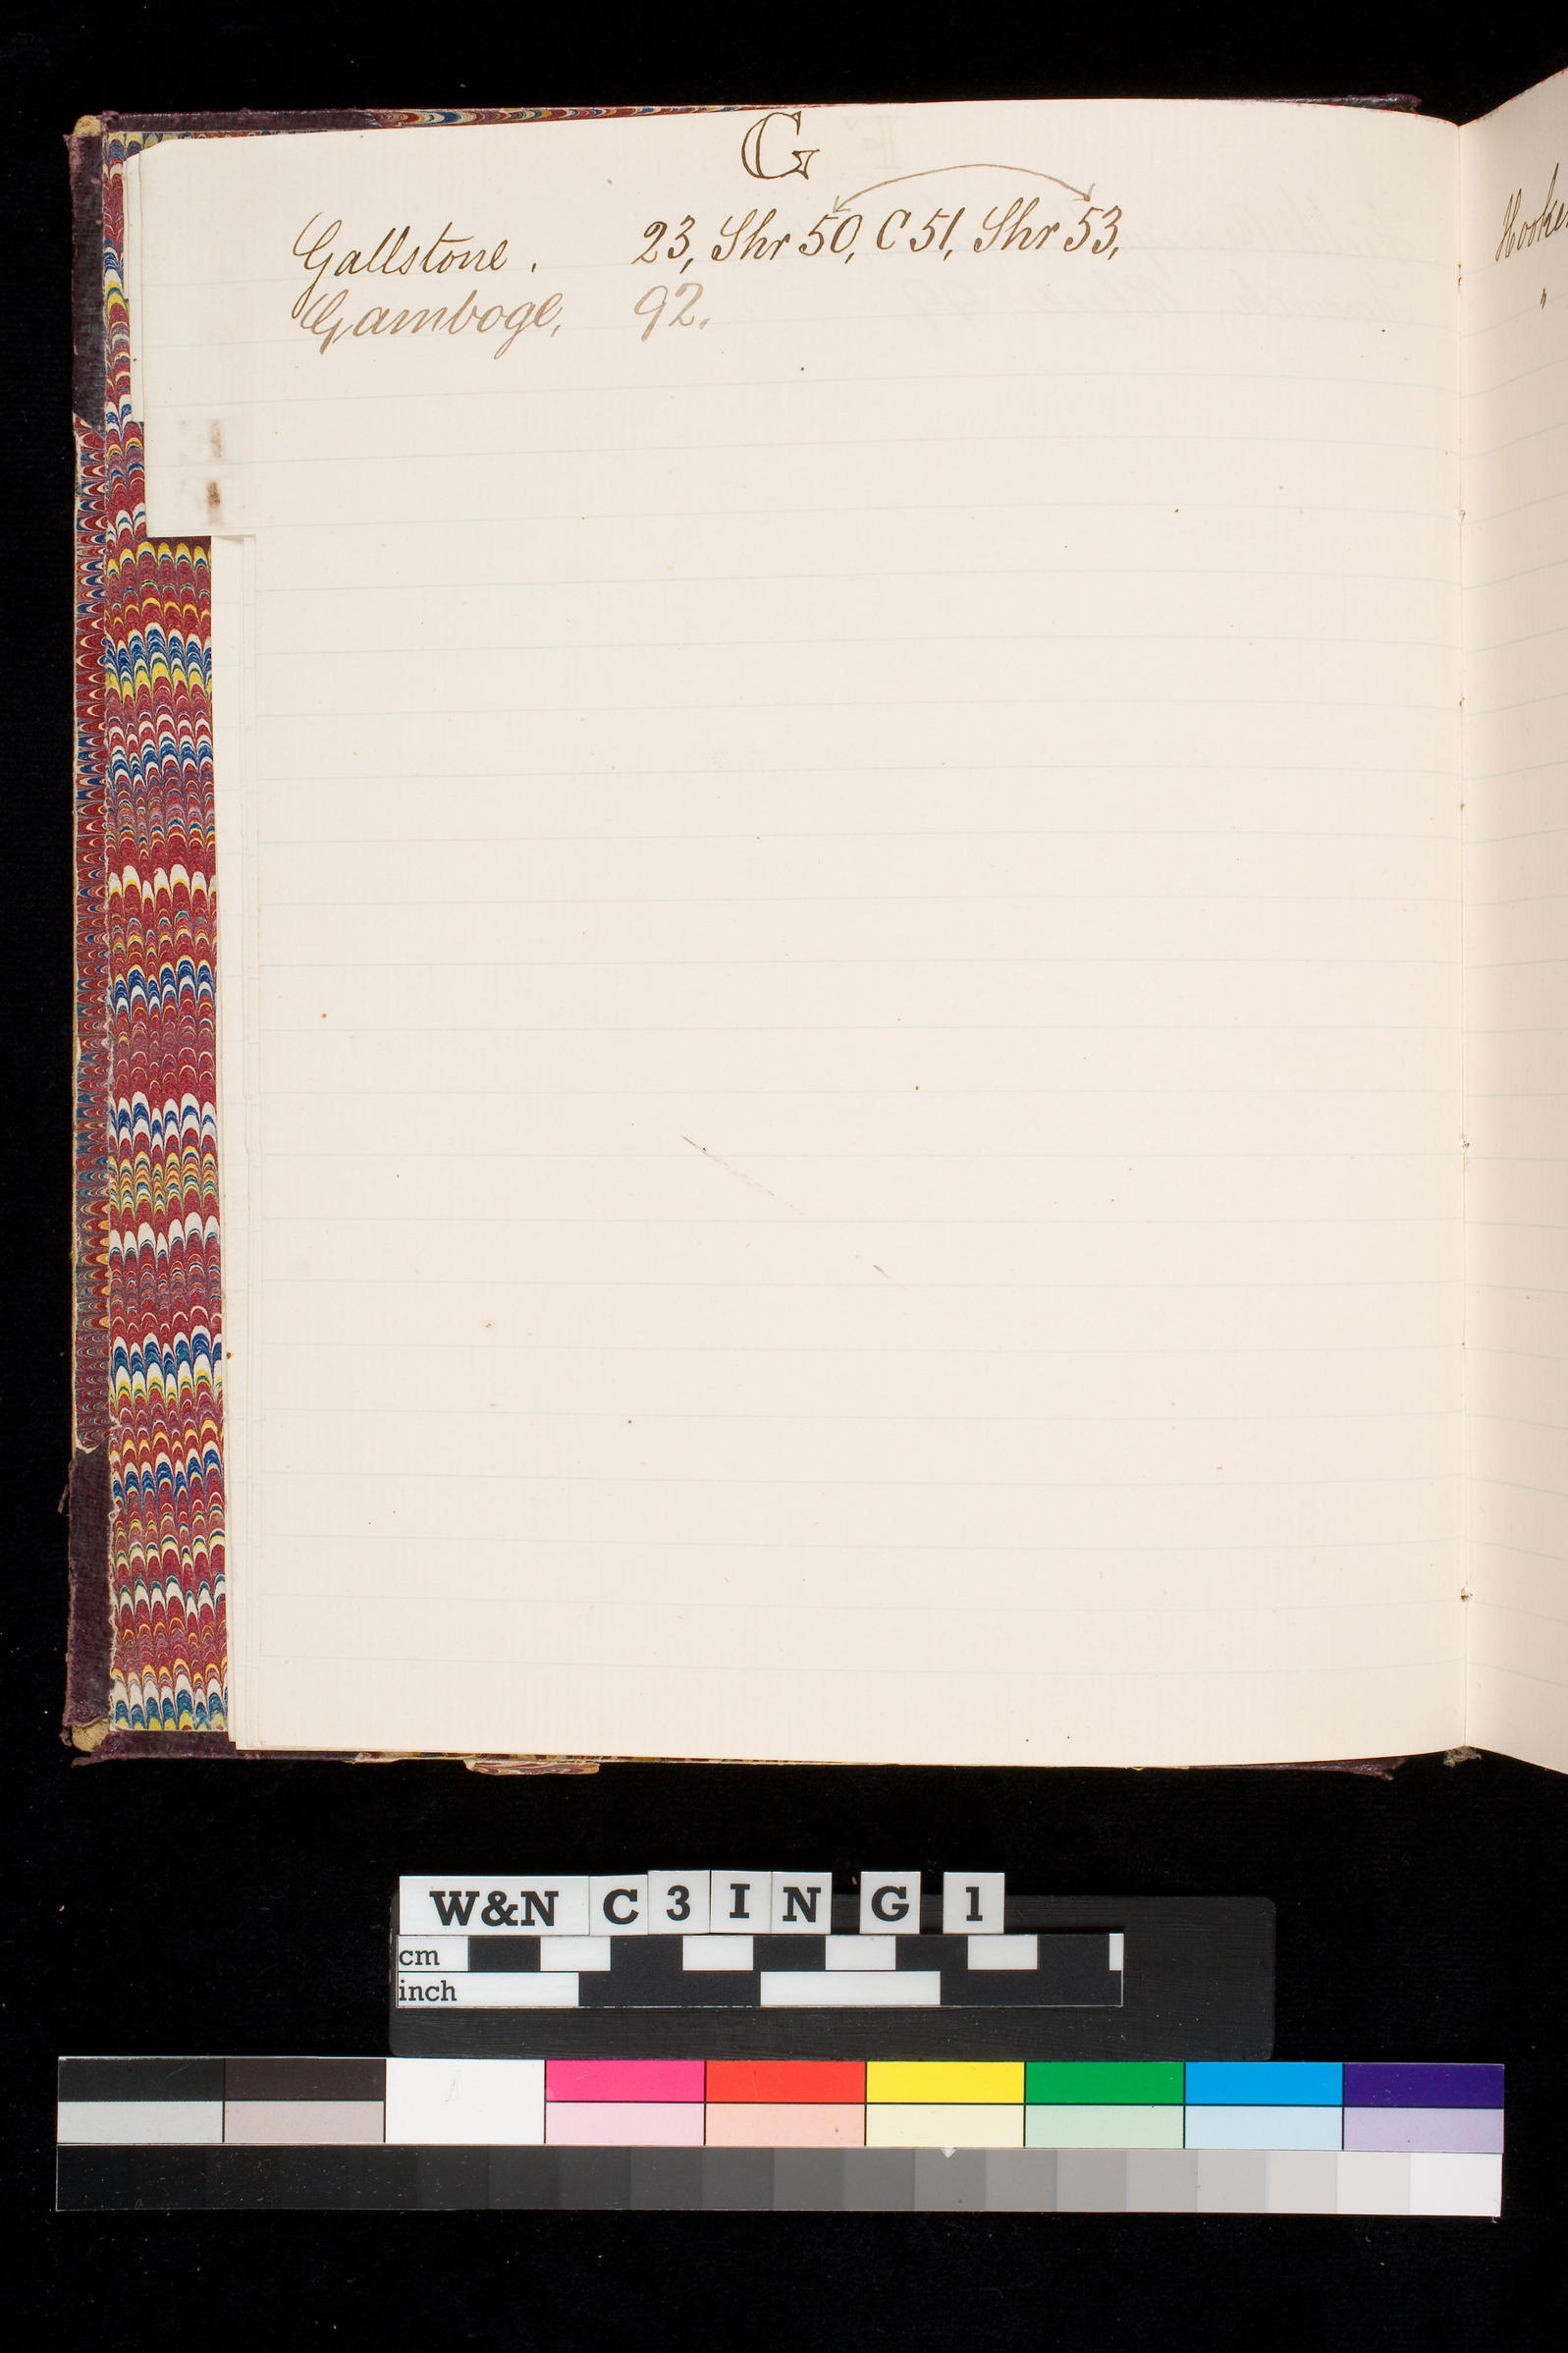 G
Gallstone. 23, Shr 50, C 51, Shr 53,
Gamboge, 92.
Hooke
"
W&N C 3 I N G 1
cm
inch